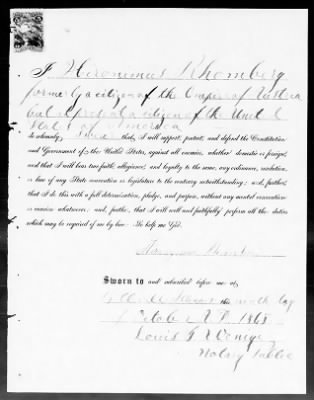 I Hieronimus Rhomberg
formerly a citizen of the Empire of Austria
but at present a citizen of the United
States of America
do solemnly swear that, I will support, protect, and defend the Constitution
and Government of the United States, against all enemies, whether domestic or foreign;
and that I will bear true faith, allegiance, and loyalty to the same, any ordinance, resolution
or law of any State convention or legislature to the contrary notwithstanding; and, further,
that I do this with a full determination, pledge, and purpose, without any mental reservation
or evasion whatsoever; and, further, that I will well and faithfully perform all the duties
which may be required of me by law. So help me God.
Sworn to and subscribed before me at,
this ninth day
of October A.D. 1868
Louis F
Notary Public